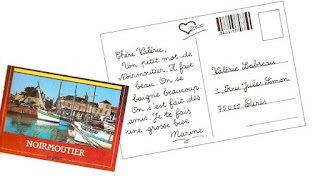 Chère Valérie,
Un petit mot de
Noirmoutier. Il fait
beau. On se
baigne beaucoup.
On s'est fait des
amis. Je te fais
une grosse bise.
Marine
Valérie Labreau
1, Rue Jules Simon
75015 Paris
NOIRMOUTIER